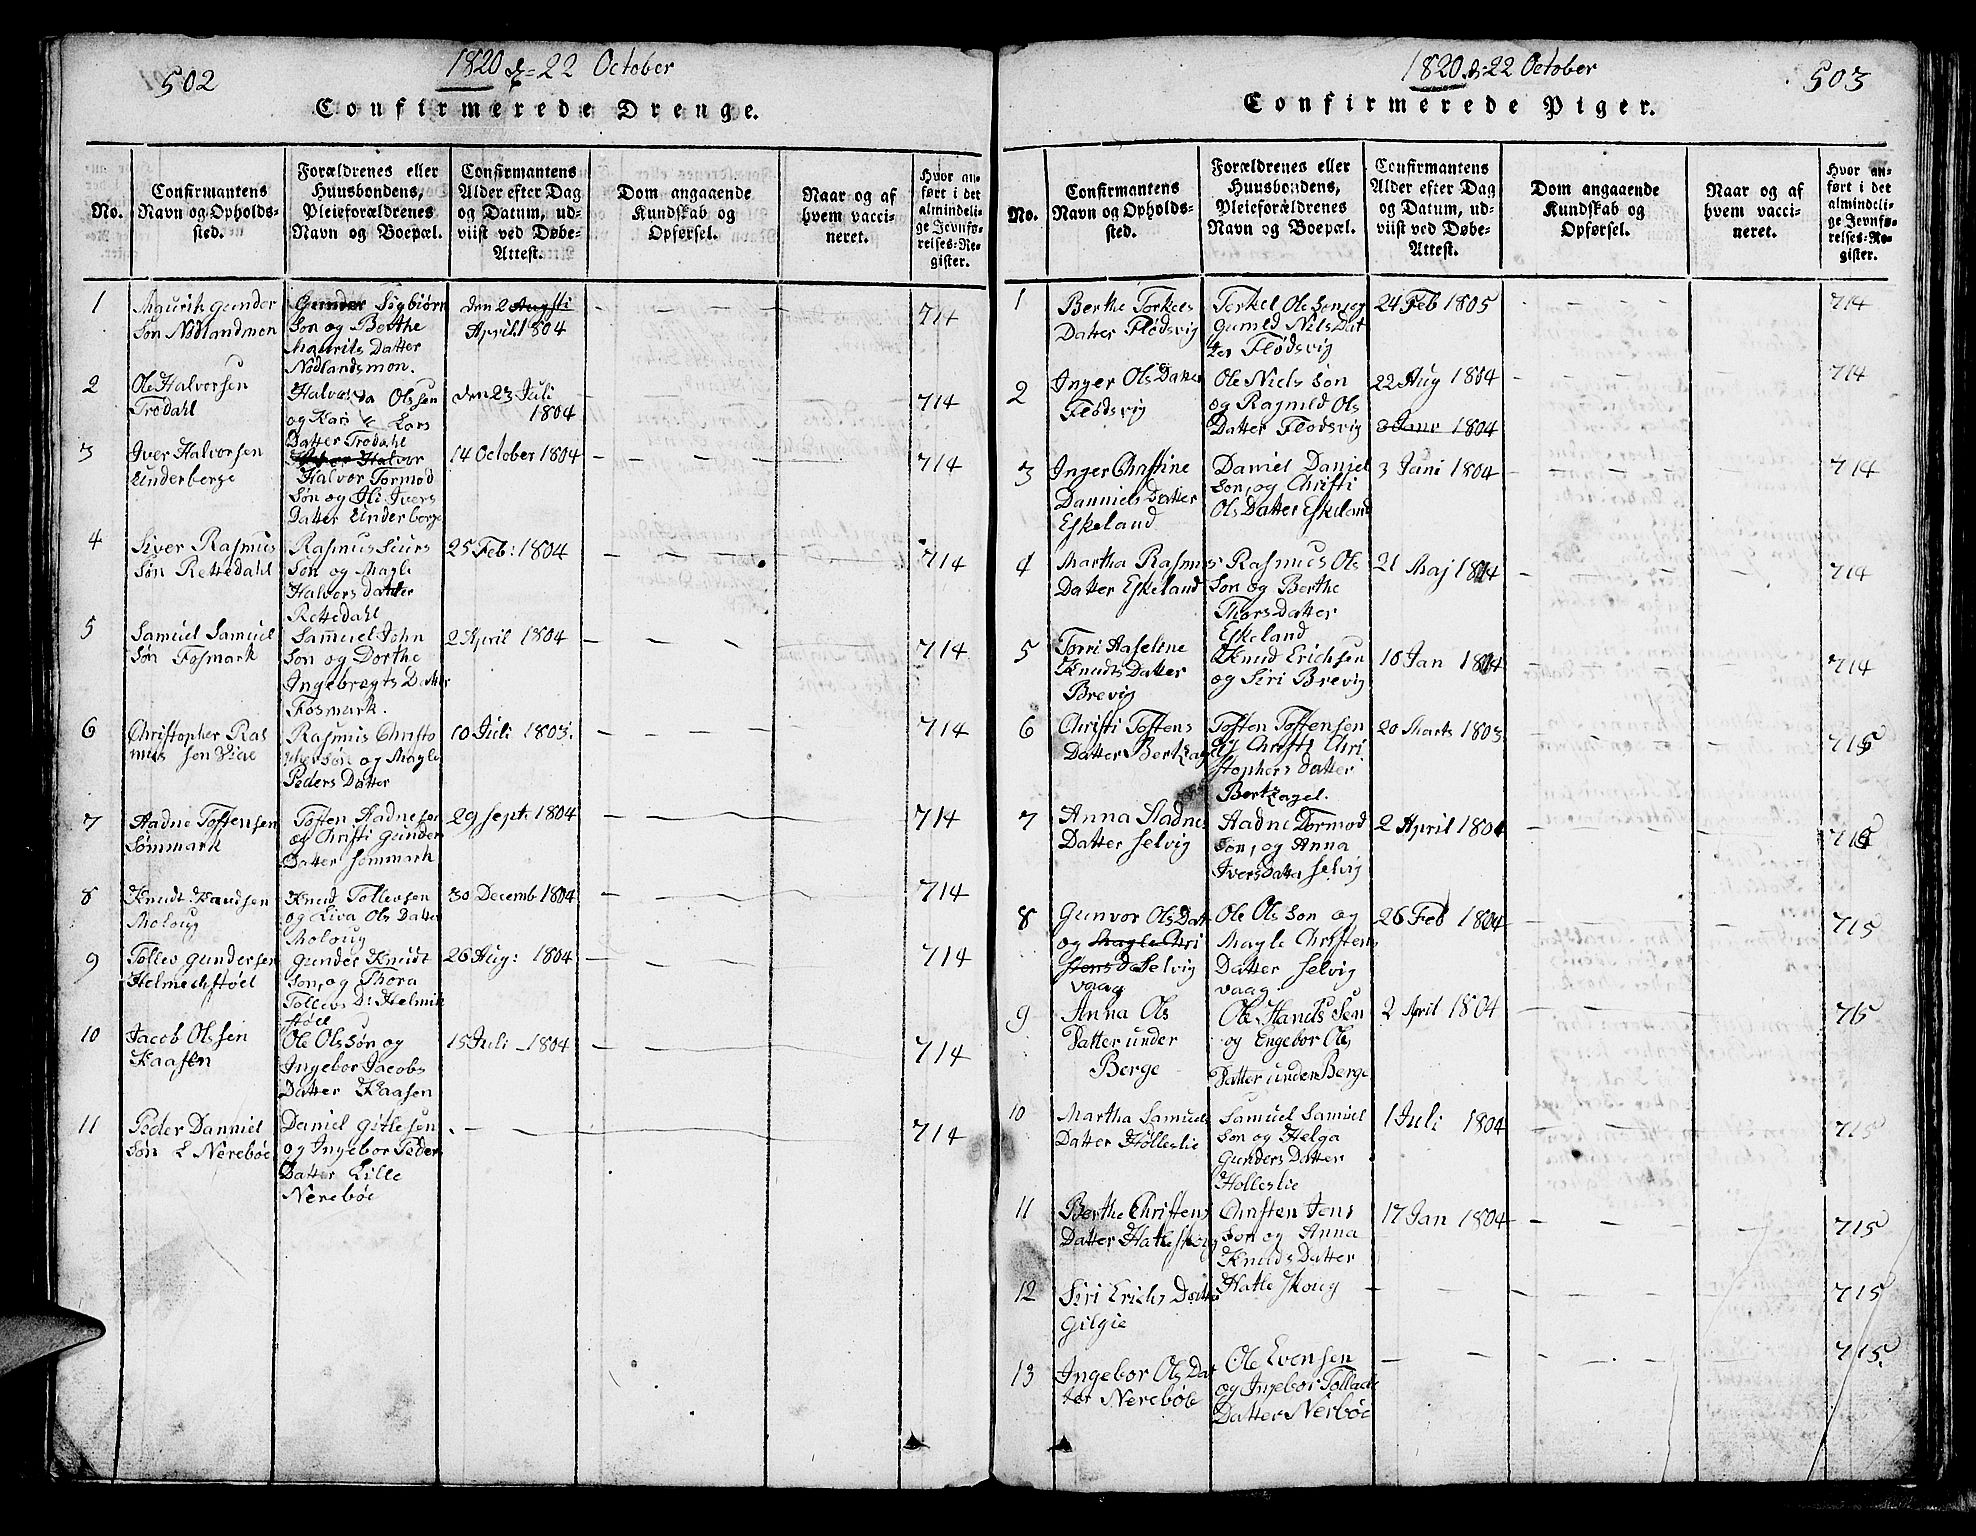 502
1820 d= 22 October
Confirmerede Drenge.
No.
Confirmantens
Navn og Opholds-
sted.
Forældrenes eller
Huusbondens,
Pleieforældrenes
Navn og Boepæl.
Confirmantens
Alder efter Dag
og Datum, ud-
viist ved Døbe-
Attest.
Dom angaaende
Kundskab og
Opførsel.
Naar og af
hvem vacci-
neret.
Hvor an-
ført i det
almindeli-
ge Jevnfø-
relses-Re-
gister.
1
Maurik Gunder
Søn Nødlandmon
Gunder Sigbiørn
Søn og Berthe
Maurits Datter
Nødlandsmon.
den 2 Augsti
April 1804
714
2
Ole Halvorsen
Trødahl
Halvor Olssen
og Kari Lars
Datter Trodahl
den 23 Juli
1804
714
3
Iver Halvorsen
Underberge
Halvor
Halvor Tormod
Søn og Ili Ivers
Datter Underberge
14 October 1804
714
4
Siver Rasmus
Søn Rettedahl
Rasmus Siurs
Søn og Magli
Halvors datter
Rettedahl
25 Feb: 1804
714
5
Samuel Samuel
Søn Fosmark
Samuel John
Søn og Dorthe
Ingebregts Datter
Fosmark.
2 April 1804
714
6
Christopher Ras
mus Søn Viae
Rasmus Christo
phersøn og Magle
Peders Datter
10 Juli 1803.
714
7
Aadne Tostensen
Sømmark
Tosten Aadnesen
og Christi Gunder
Datter Sømmark
29 Sept. 1804
714
8
Knudt Knudsen
Moloug
Knud Tollevsen
og Liva Ols Datter
Moloug
30 Decemb 1804
714
9
Tollev Gundersen
Helmichstøel
Gunder Knudt
Søn, og Thora
Tollevs D: Helmik
støel
26 Aug: 1804
714
10
Jacob Olssen
Kaasen
Ole Ols Søn og
Ingebor Jacobs
Datter Kaasen
15 Juli 1804
714
11
Peder Danniel
Søn L Nerebøe
Daniel Gitlesen
og Ingebor Peder
Datter Lille
Nerebøe
714
503
1820 d: 22 October
Confirmerede Piger.
No.
Confirmantens
Navn og Opholds-
sted.
Forældrenes eller
Huusbondens,
Pleieforældrenes
Navn og Boepæl.
Confirmantens
Alder efter Dag
og Datum, ud-
viist ved Døbe-
Attest.
Dom angaaende
Kundskab og
Opførsel.
Naar og af
hvem vacci-
neret.
Hvor an-
ført i det
almindeli-
ge Jevnfø-
relses-Re-
gister.
1
Berthe Torkels
Datter Flødsvig
Torkel Ole Søn, og
Guneld Nils Dat
ter Flødsvig
24 Feb 1805
714
2
Inger Ols Datter
Flødsvig
Ole Niels Søn
og Ragnild Ols
Datter Flodsvig
22 Aug 1804
3 Janr 1804
714
3
Inger Christine
Danniels Datter
Eskeland
Daniel Daniel
Søn, og Christi
Ols Datter Eskeland
3 Juni 1804
714
4
Martha Rasmus
Datter Eskeland
Rasmus Ols
Søn og Berthe
Thors Datter
Eskeland
21 Maj 1804
714
5
Torri Aaseline
Knudts Datter
Brevig
Knud Erichsen
og Siri Brevig
10 Jan 1804
714
6
Christi Tostens
Datter Bertzagel
Tosten Tostensen
og Christi Chri
stophers datter
Bertzagel.
20 Marts 1803
715
7
Anna Aadnes
Datter Selvig
Aadne Tormod
Søn, og Anna
Iversdatter Selvig
2 April 1804
715
8
Gunvor Ols Datt
og Magle Chri
stens Da Selvig
vaag
Ole Ols Søn og
Magle Christens
Datter Selvig
vaag
26 Feb 1804
715
9
Anna Ols
Datter under
Berge
Ole Hands Sen
og Engebor Ols
Datter under Berge
2 April 1804
76
10
Martha Samuels
Datter Hølleslie
Samuel Samuel
Søn og Helga
Gunders Datter
Holleslie
1 Juli 1804
715
11
Berthe Christens
Datter Hatleskoug
Christen Jens
Søn og Anna
Knuds Datter
Hatle Skoug
17 Jan 1804
715
12
Siri Erichs Datter
Gilgie
715
13
Ingebor Ols Dat
ter Nerebøe
Ole Evensen
og Ingebor Tollach
Datter Nerbøe
715.